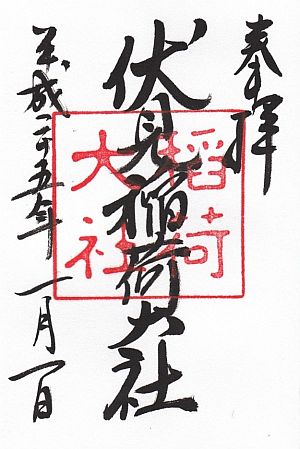 奉拝
伏見稲荷大社
稲荷大社
平成二十五年 一月一日